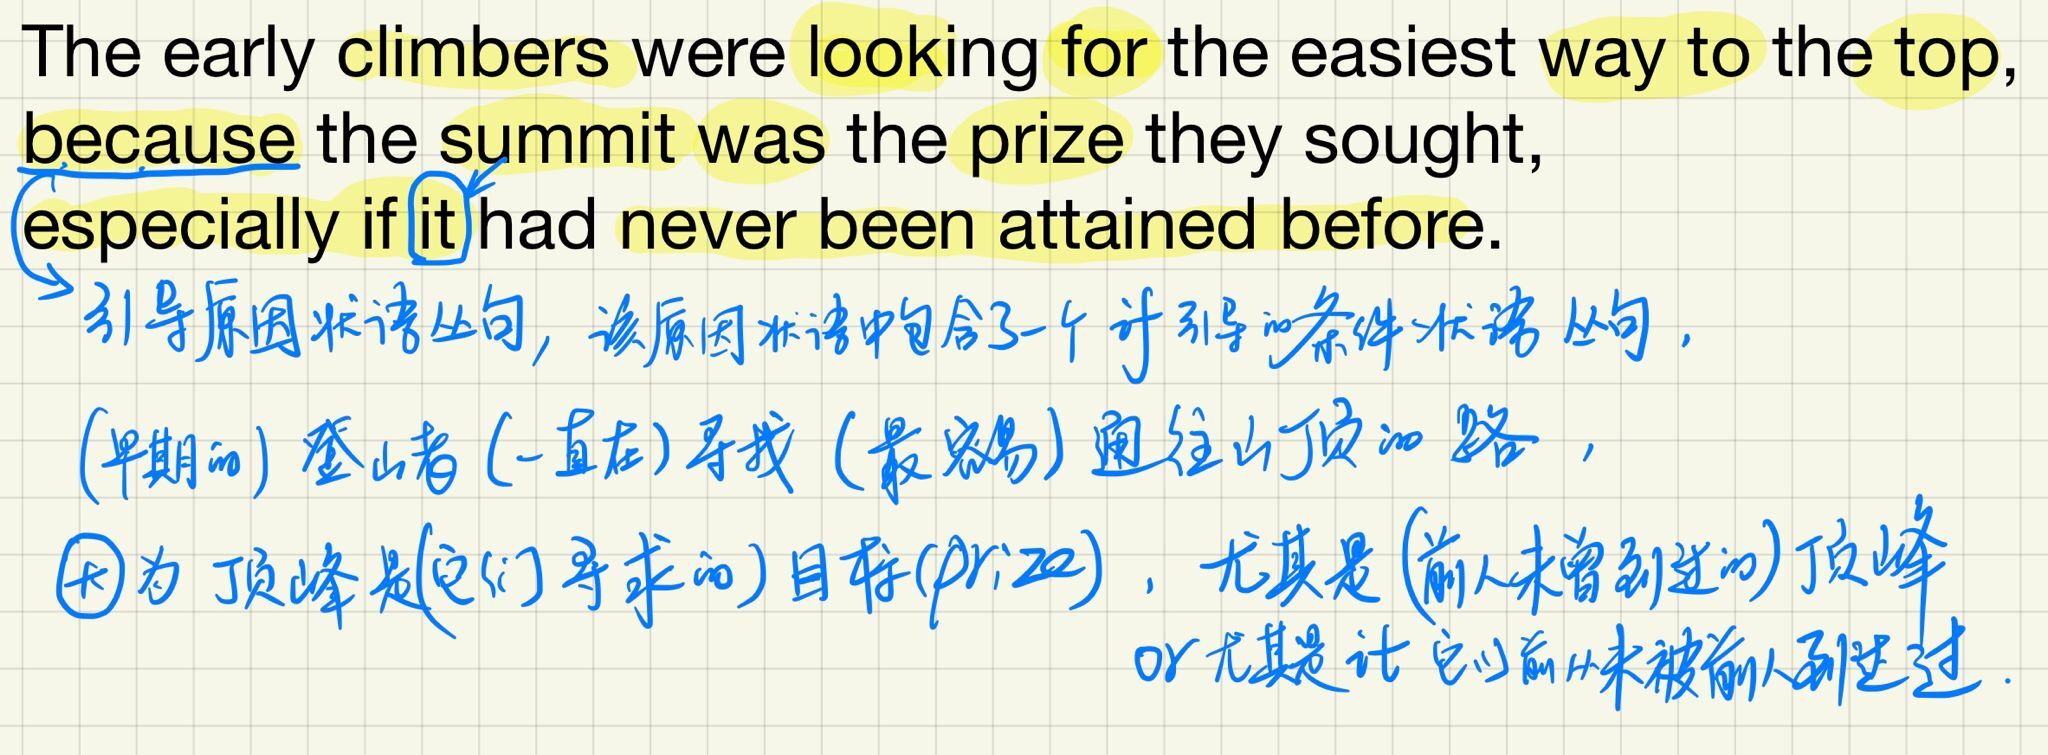 The early climbers were looking for the easiest way to the top,
because the summit was the prize they sought,
especially if it had never been attained before.
引导原因状语丛句, 该原因状语中包含了一个 if 引导的条件状语丛句,
(早期的) 登山者 (一直在) 寻找 (最容易) 通往山顶的路,
因为顶峰是(它们寻求的)目标(prize), 尤其是(前人未曾到过的)顶峰
or 尤其是 前 未被前人到达过.